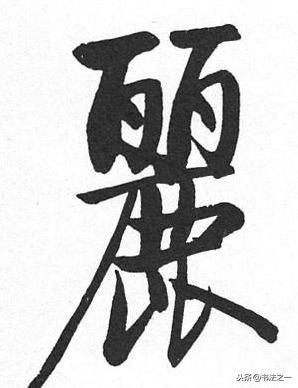 麗
头条@书法之一